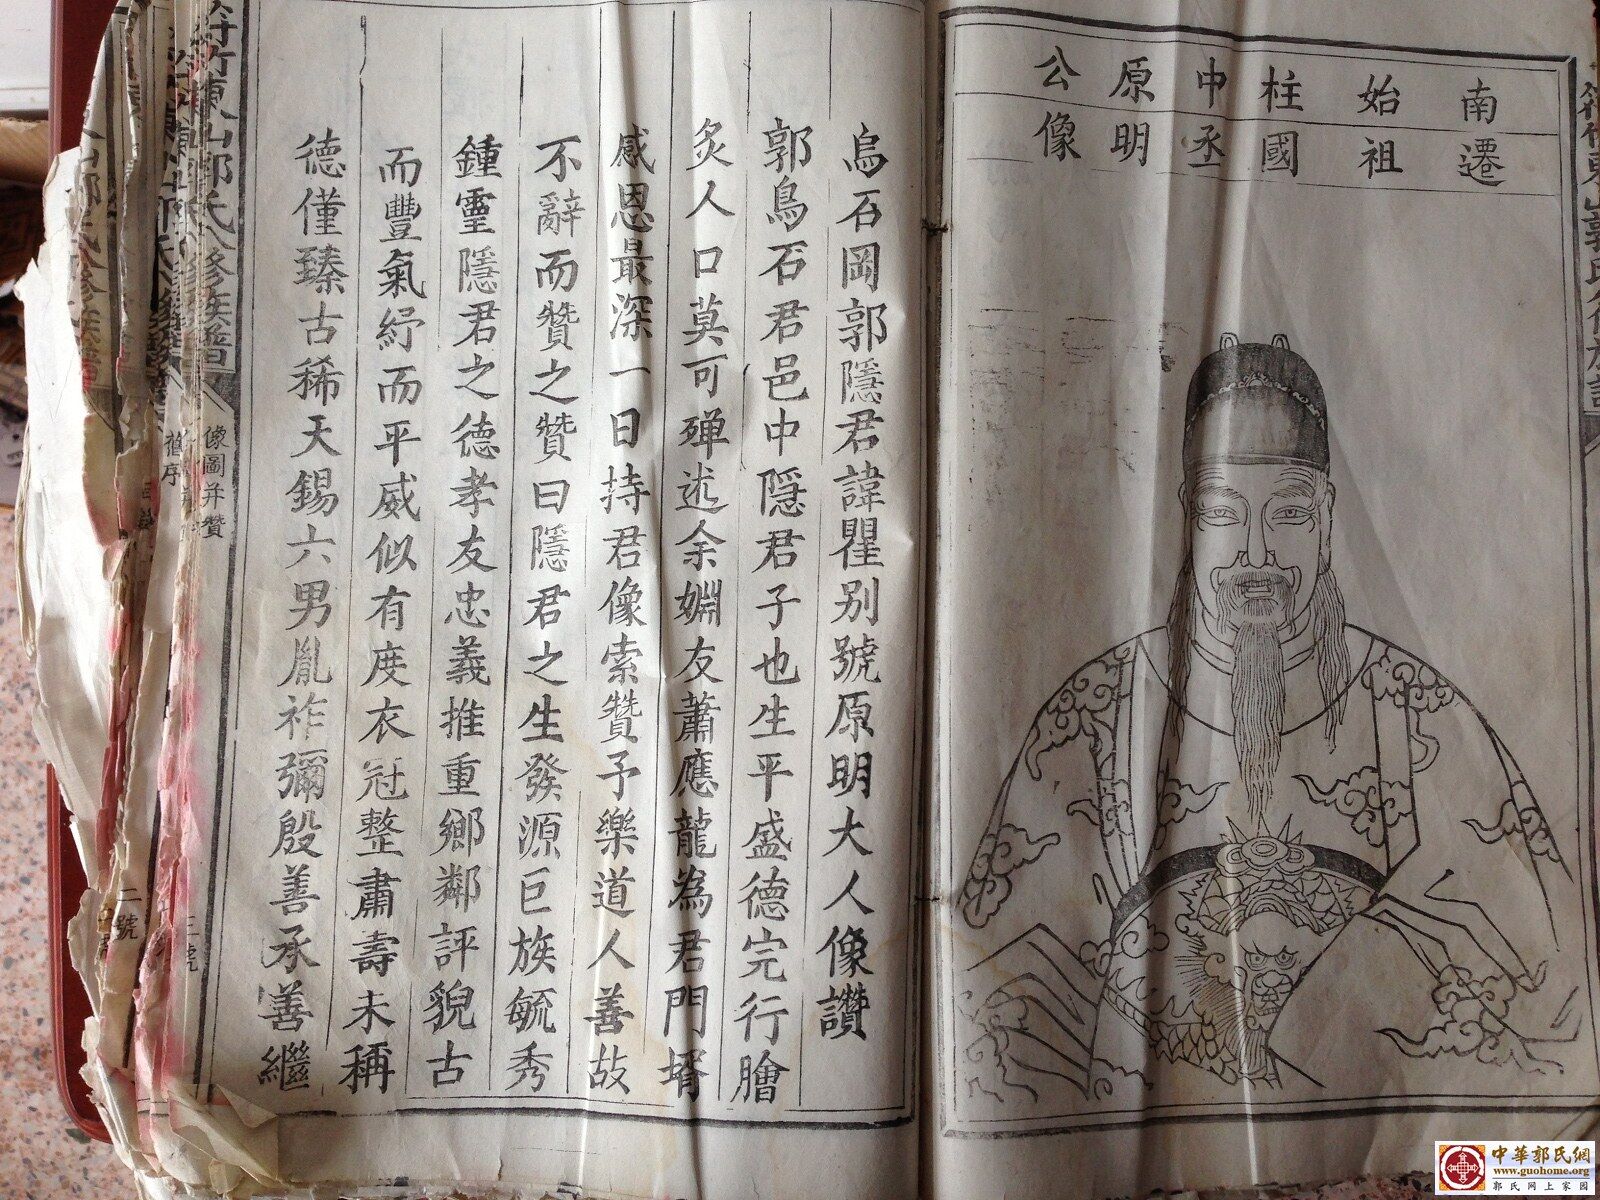 南遷
始祖
柱國
中丞
原明
公像
烏石岡郭隱君諱瞿別號原明大人像讚
郭烏石君邑中隱君子也生平盛德完行膾
炙人口莫可殫述余姻友蕭應龍為君門壻
感恩最深一日持君像索贊予樂道人善故
不辭而贊之贊曰隱君之生發源巨族毓秀
鍾靈隱君之德孝友忠義推重鄉鄰評貌古
而豐氣紓而平威似有度衣冠整肅壽未稱
德僅臻古稀天錫六男胤祚彌殷善承善繼
像圖并贊
舊序
二號
中華郭氏網
www.guohome.org
郭氏网上家园